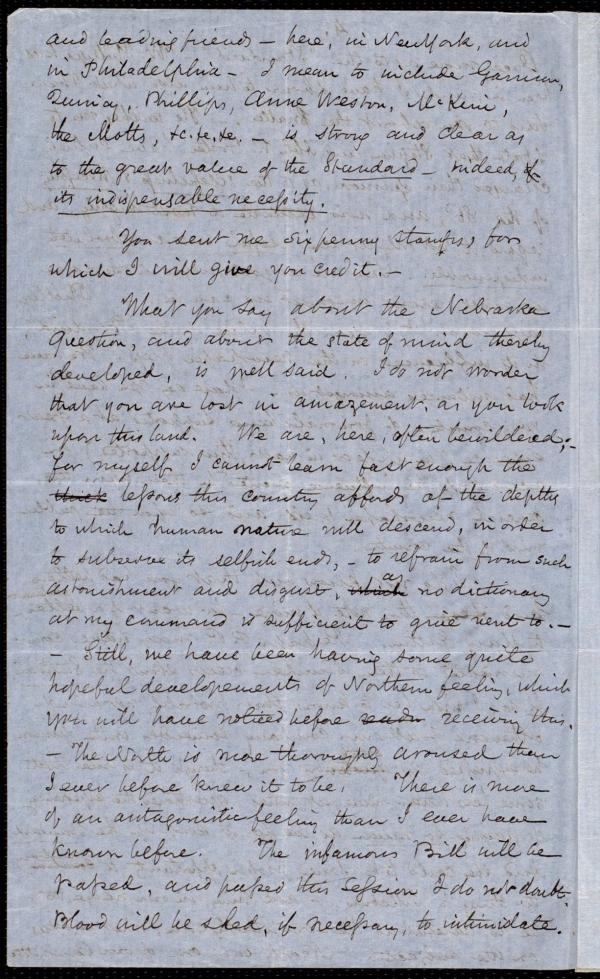 and leading friends – here, in New York, and
in Philadelphia – I mean to include Garrison,
Quincy, Phillips, Anne Weston, McKim,
the Motts, &c. &c. &c. – is strong and clear as
to the great value of the Standard – indeed, of
its indispensable necessity.
You sent me six penny stamps, for
which I will give you credit. –
What you say about the Nebraska
question, and about the state of mind thereby
developed, is well said. I do not wonder
that you are lost in amazement, as you look
upon this land. We are, here, often bewildered; –
for myself I cannot learn fast enough the
thick lessons this country affords of the depths
to which human nature will descend, in order
to subserve its selfish ends, – to refrain from such
astonishment and disgust, which as no dictionary
at my command is sufficient to give vent to. –
– Still, we have been having some quite
hopeful developements of Northern feeling, which
you will have noticed before receiving this.
– The North is more thoroughly aroused than
I ever before knew it to be. There is more
of an antagonistic feeling than I ever have
known before. The infamous Bill will be
passed, and passed this Session I do not doubt.
Blood will be shed, if necessary, to intimidate.